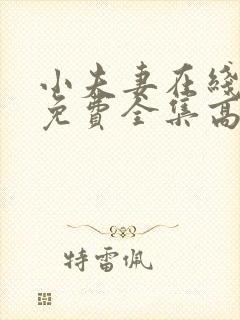 小夫妻在綫
免費全集高
特雷佩